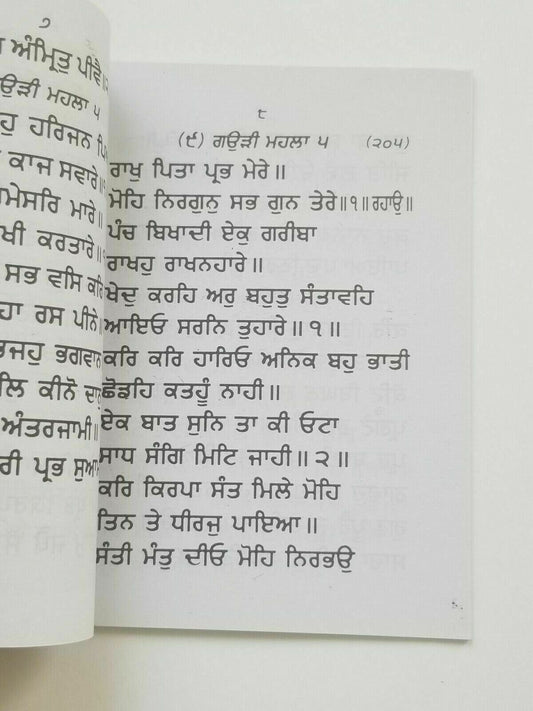 ੭
ਅੰਮ੍ਰਿਤੁ ਪੀਵੈ॥
ਗਉੜੀ ਮਹਲਾ ੫
ਹਰਿਜਨ
ਕਾਜ ਸਵਾਰੇ॥
ਮਾਰੇ॥
ਕਰਤਾਰੇ॥
ਸਭ ਵਸਿ ਕਰਿ
ਰਸ ਪੀਨੇ॥
ਭਗਵਾਨ
ਕੀਨੋ
ਅੰਤਰਜਾਮੀ॥
ਪ੍ਰਭ
੮
(੯) ਗਉੜੀ ਮਹਲਾ ੫ (੨੦੫)
ਰਾਖੁ ਪਿਤਾ ਪ੍ਰਭ ਮੇਰੇ॥
ਮੋਹਿ ਨਿਰਗੁਨੁ ਸਭ ਗੁਨ ਤੇਰੇ॥੧॥ਰਹਾਉ॥
ਪੰਚ ਬਿਖਾਦੀ ਏਕੁ ਗਰੀਬਾ
ਰਾਖਹੁ ਰਾਖਨਹਾਰੇ॥
ਖੇਦੁ ਕਰਹਿ ਅਰੁ ਬਹੁਤੁ ਸੰਤਾਵਹਿ
ਆਇਓ ਸਰਨਿ ਤੁਹਾਰੇ॥੧॥
ਕਰਿ ਕਰਿ ਹਾਰਿਓ ਅਨਿਕ ਬਹੁ ਭਾਤੀ
ਛੋਡਹਿ ਕਤਹੂੰ ਨਾਹੀ॥
ਏਕ ਬਾਤ ਸੁਨਿ ਤਾ ਕੀ ਓਟਾ
ਸਾਧ ਸੰਗਿ ਮਿਟਿ ਜਾਹੀ॥੨॥
ਕਰਿ ਕਿਰਪਾ ਸੰਤ ਮਿਲੇ ਮੋਹਿ
ਤਿਨ ਤੇ ਧੀਰਜੁ ਪਾਇਆ॥
ਸੰਤੀ ਮੰਤੁ ਦੀਓ ਮੋਹਿ ਨਿਰਭਉ